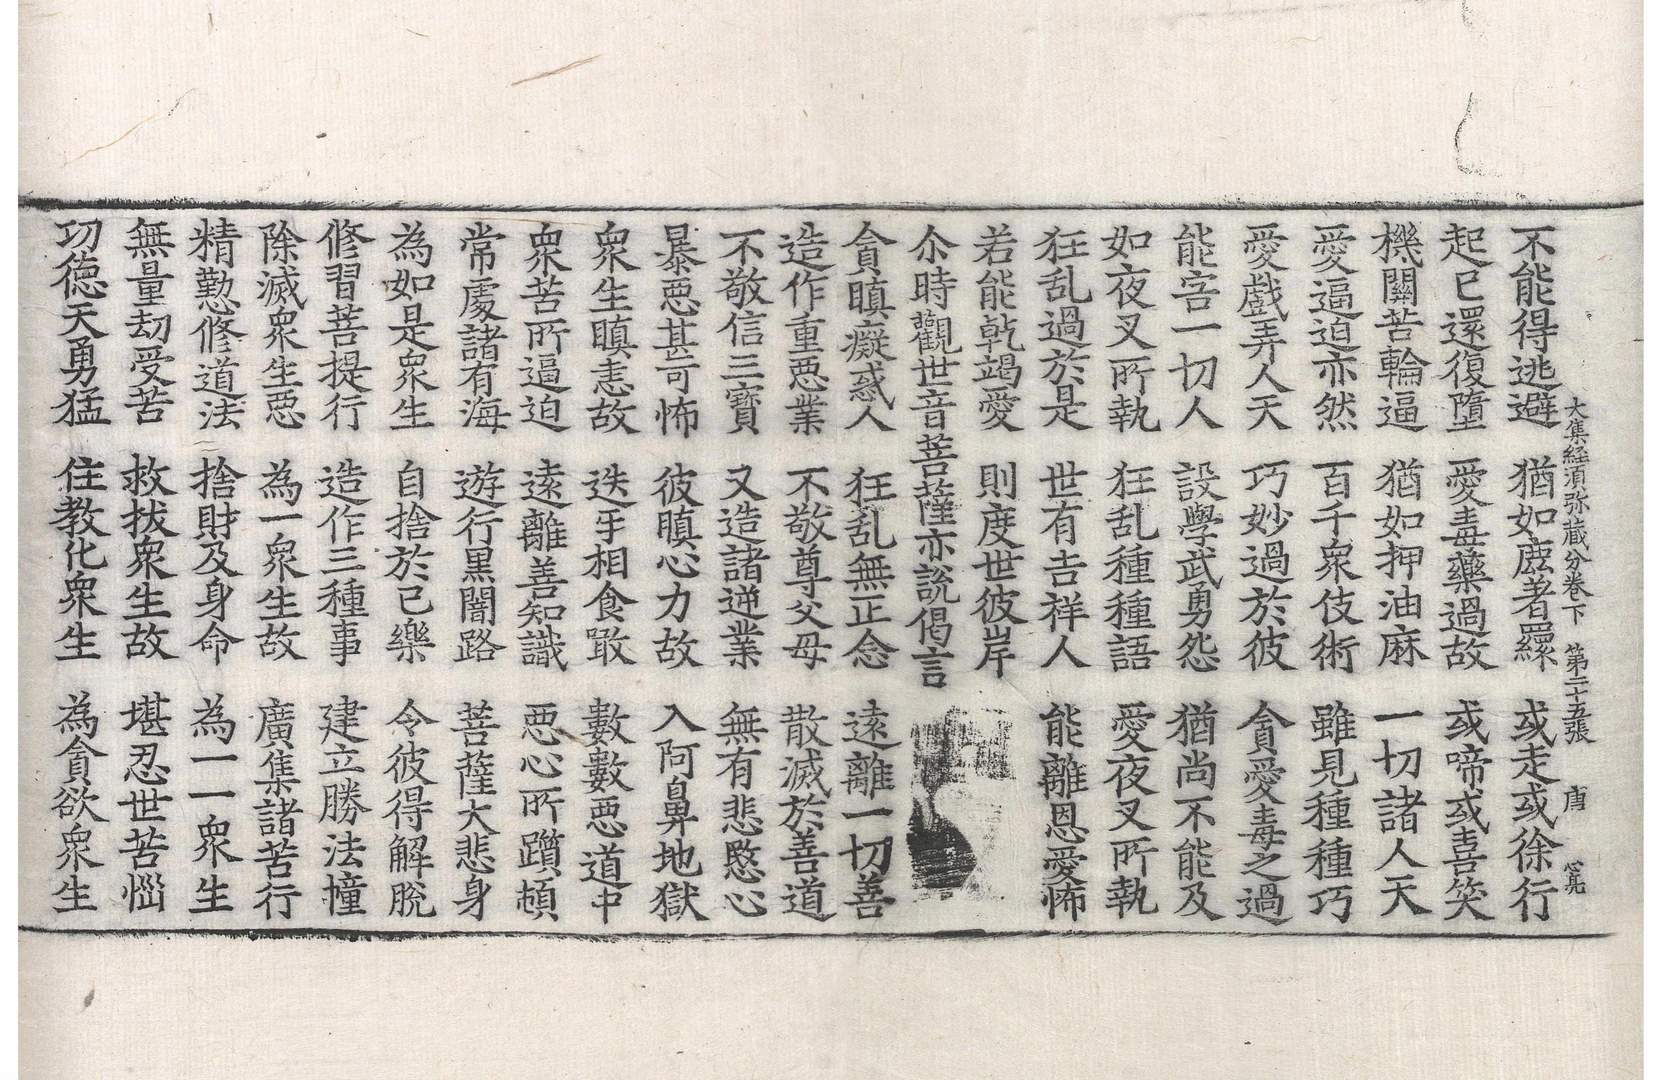 大集経須弥藏分卷下　第二十五張　唐　
不能得逃避　猶如麁著羂　或走或徐行
起已還復墮　愛毒藥過故　或啼或喜笑
機關苦輪逼　猶如押油麻　一切諸人天
愛逼迫亦然　百千衆伎術　雖見種種巧
愛戲弄人天　巧妙過於彼　貪愛毒之過
能害一切人　設學武勇怨　猶尚不能及
如夜叉所執　狂乱種種語　愛夜叉所執
狂乱過於是　世有吉祥人　能離恩愛怖
若能乹竭愛　則度世彼岸
尒時觀世音菩薩亦說偈言
貪瞋癡惑人　狂乱無正念　遠離一切善
造作重惡業　不敬尊父母　散滅於善道
不敬信三寶　又造諸逆業　無有悲愍心
暴惡甚可怖　彼瞋心力故　入阿鼻地獄
衆生瞋恚故　迭手相食噉　數數惡道中
衆苦所逼迫　遠離善知識　惡心所躓頓
常處諸有海　遊行黒闇路　菩薩大悲身
為如是衆生　自捨於己樂　令彼得解脫
修習菩提行　造作三種事　建立勝法幢
除滅衆生惡　為一衆生故　廣集諸苦行
精懃修道法　捨財及身命　為一一衆生
無量劫受苦　救拔衆生故　堪忍世苦惱
功德天勇猛　住教化衆生　為貪欲衆生